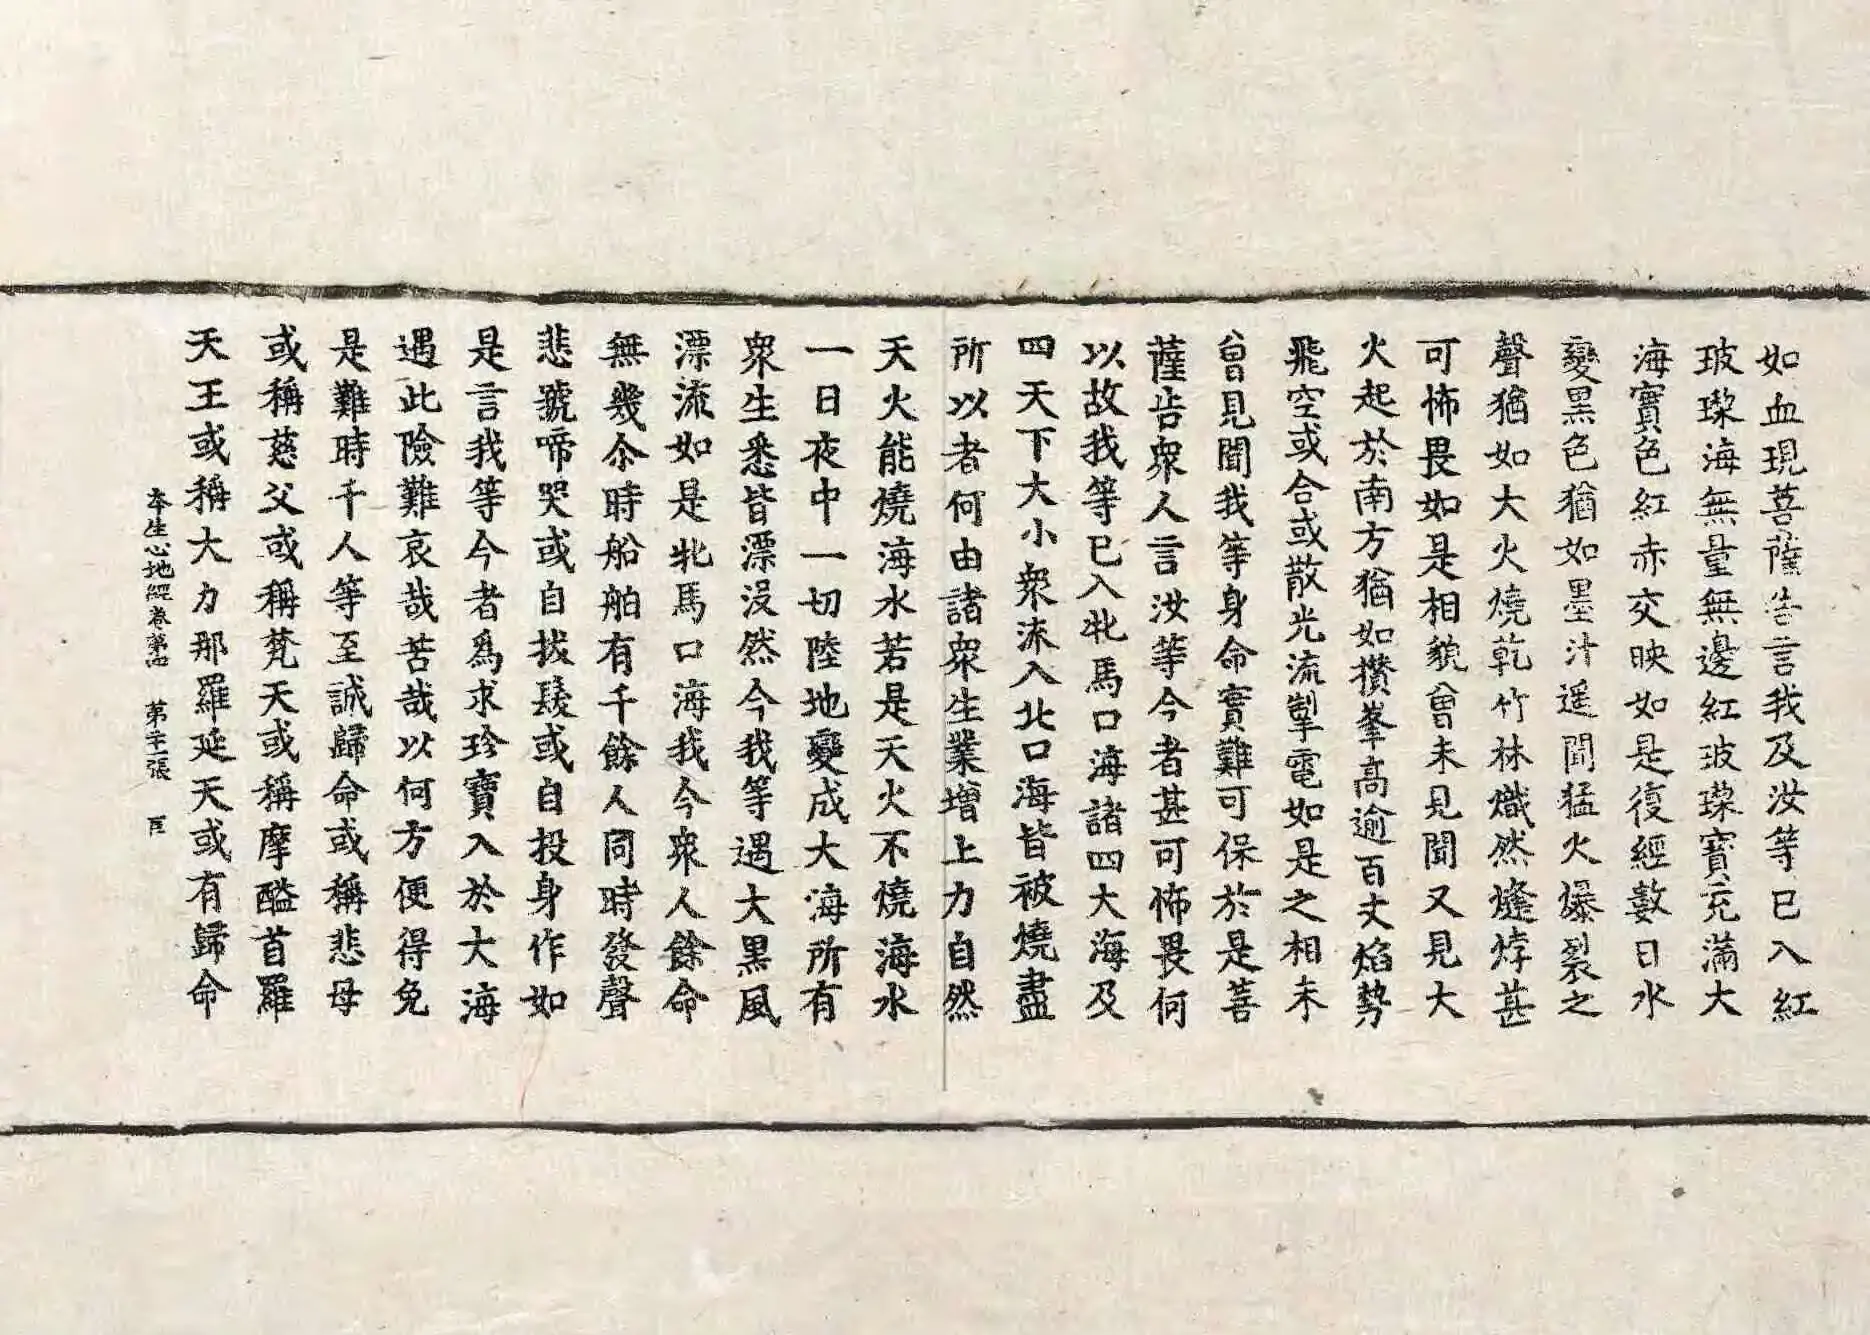 如血現菩薩告言我及汝等已入紅
玻瓈海無量無邊紅玻瓈寶充滿大
海寶色紅赤交映如是復經數日水
變黑色猶如墨汁遥聞猛火爆裂之
聲猶如大火燒乾竹林熾然㷭㶿甚
可怖畏如是相貌曾未見聞又見大
火起於南方猶如攅峯高逾百丈焰勢
飛空或合或散光流掣電如是之相未
曾見聞我等身命實難可保於是菩
薩告衆人言汝等今者甚可怖畏何
以故我等已入牝馬口海諸四大海及
四天下大小衆流入北口海皆被燒盡
所以者何由諸衆生業增上力自然
天火能燒海水若是天火不燒海水
一日夜中一切陸地變成大海所有
衆生悉皆漂沒然今我等遇大黑風
漂流如是牝馬口海我今衆人餘命
無幾尒時船舶有千餘人同時發聲
悲號啼哭或自拔髮或自投身作如
是言我等今者爲求珍寶入於大海
遇此險難哀哉苦哉以何方便得免
是難時千人等至誠歸命或稱悲母
或稱慈父或稱梵天或稱摩醯首羅
天王或稱大力那羅延天或有歸命
本生心地經卷第四 第二十一張 臣